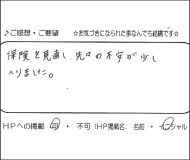 ♪ご感想・ご要望 ☆お気づきになられた事なんでも結構です☆
保険を見直し、先々の不安が少し
へりました。
HPへの掲載 可 ・ 不可（HP掲載名： 名前 ・ イニシャル